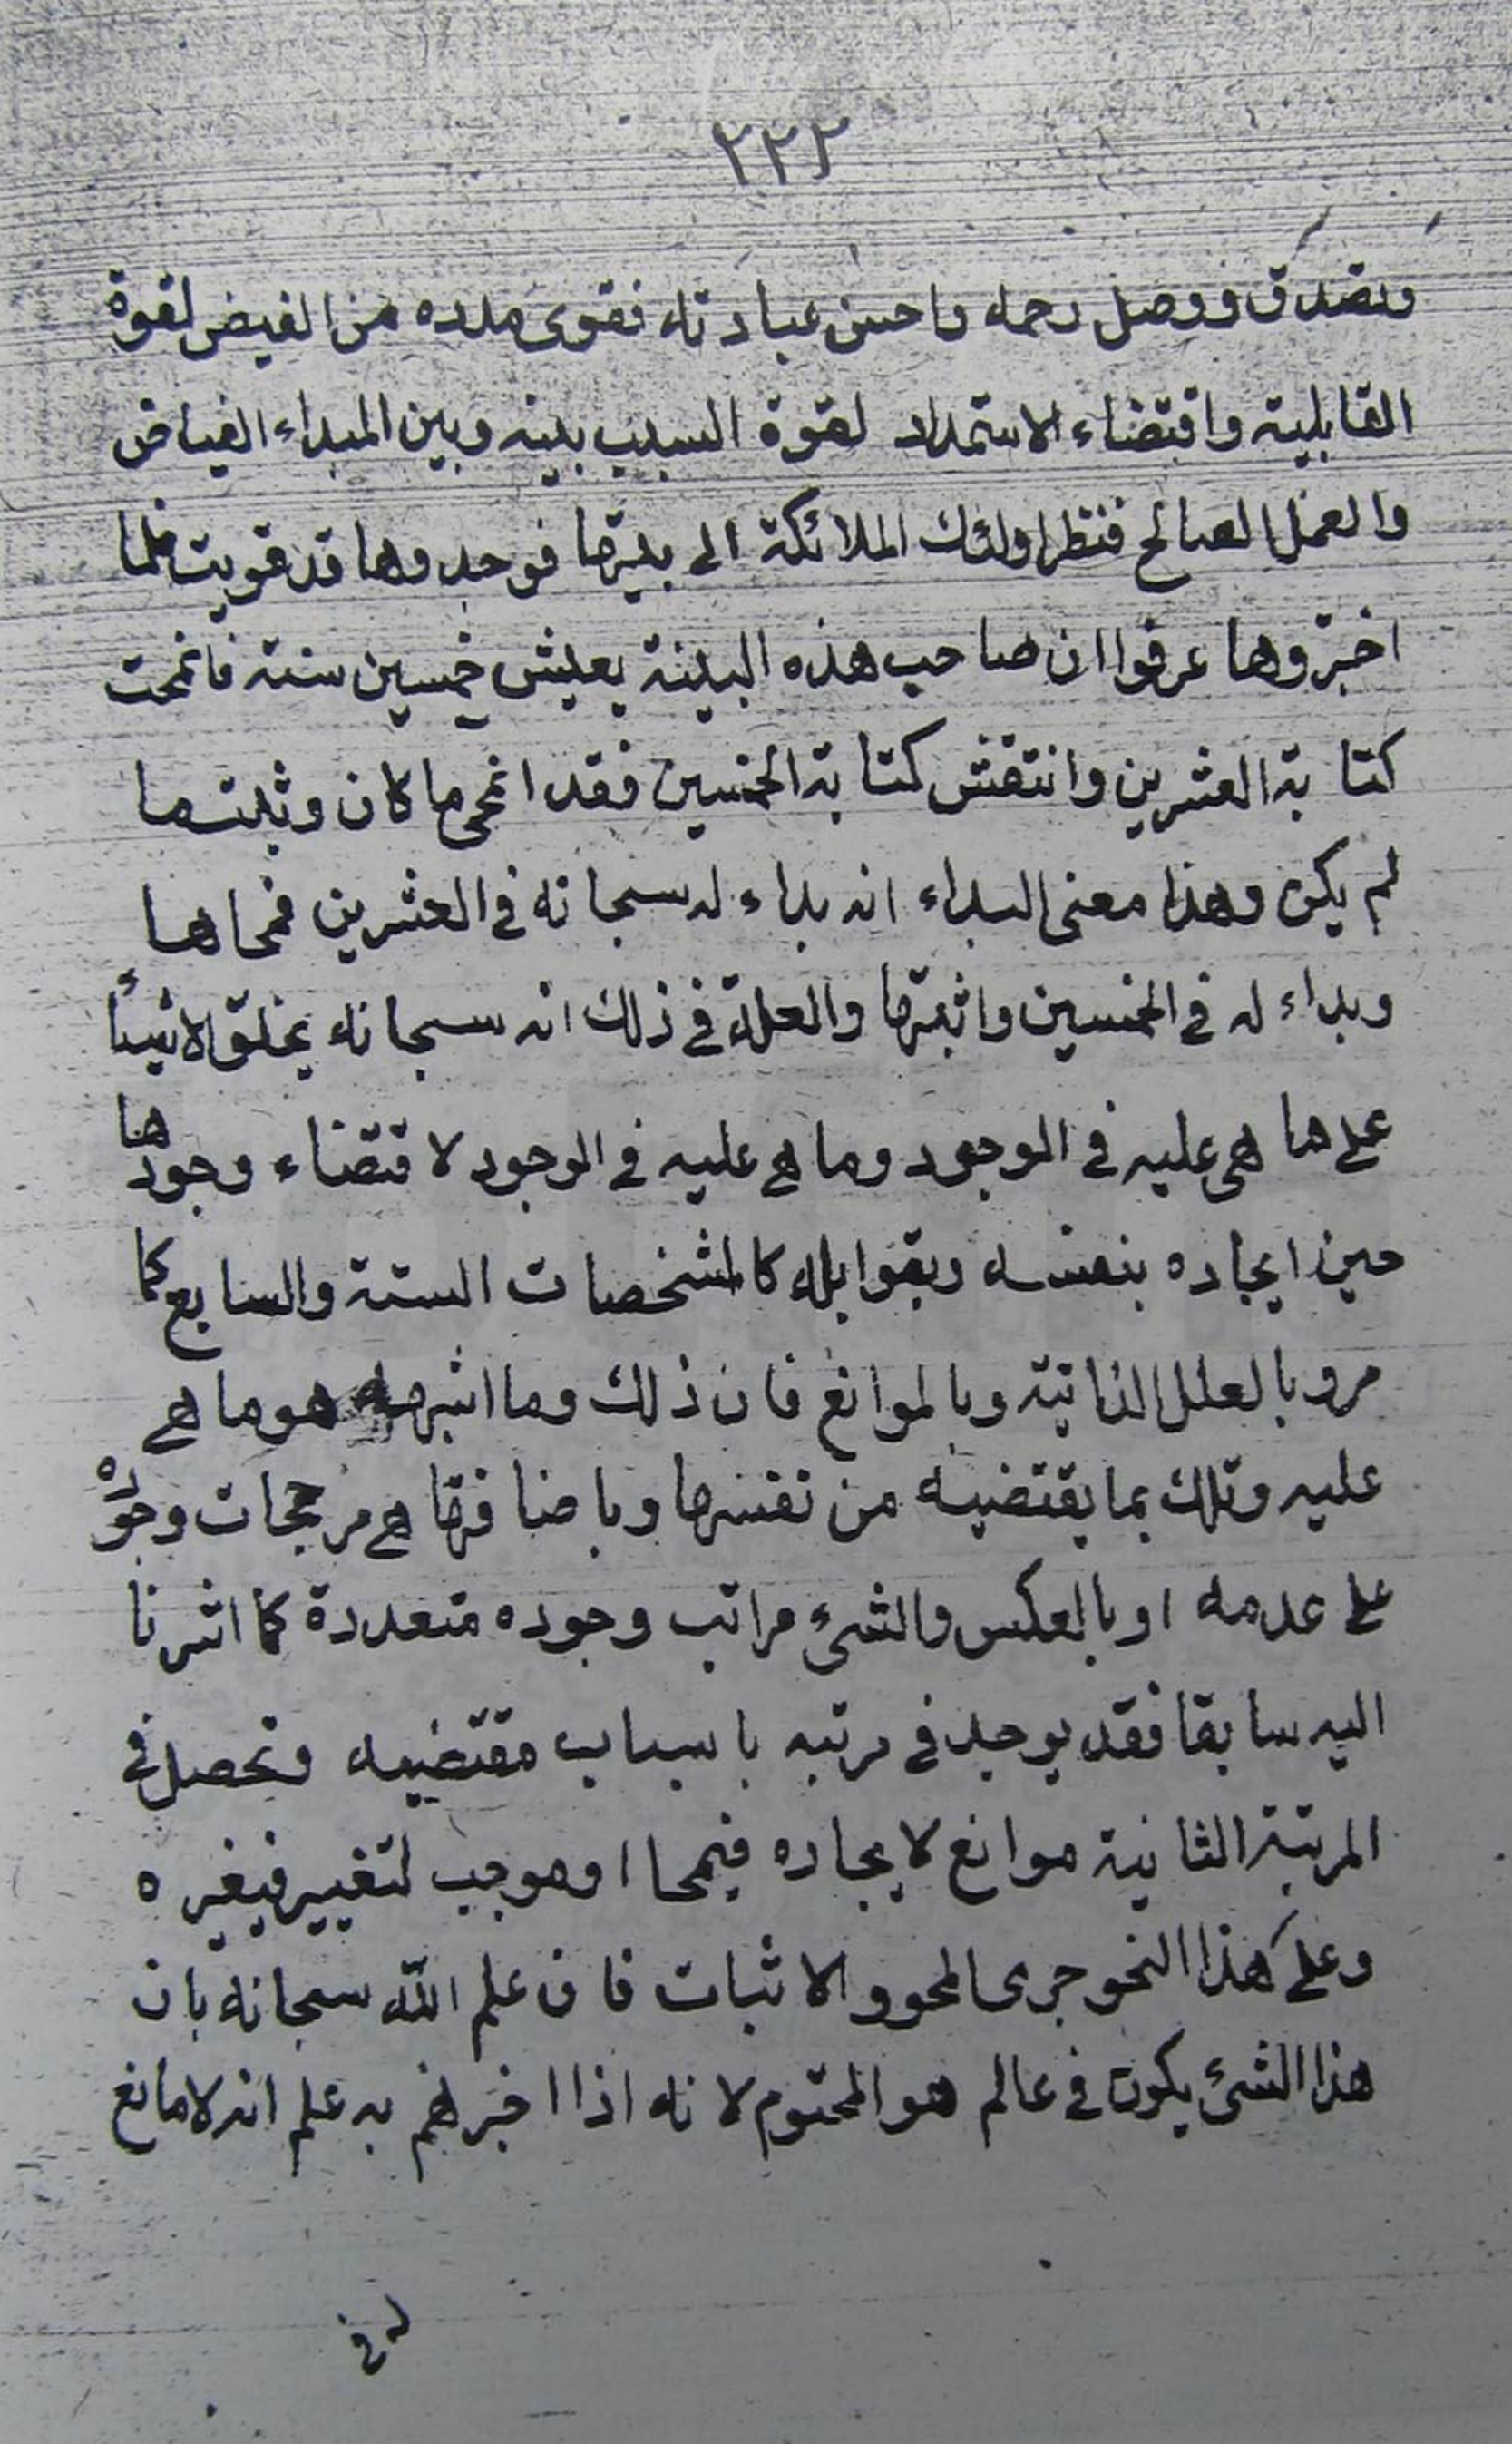 ٢٢٢
وتصدق ووصل رحمه واحسن عبادته فقوى مدده من الفيض لقوة
القابلية واقتضاء الاستمداد لقوة السبب بينه وبين المبداء الفياض
والعمل الصالح فنظر اولئك الملائكة الى بنيتها فوجدوها قد قويت فلما
اختبروها عرفوا ان صاحب هذه البينة يعيش خمسين سنة فانمحت
كتابة العشرين وانتقش كتابة الخمسين فقد انمحى ما كان وثبت ما
لم يكن وهذا معنى البداء انه بداء له سبحانه في العشرين فمحاها
وبداء له في الخمسين واثبتها والعلة في ذلك انه سبحانه يخلق الاشياء
على ما هي عليه في الوجود وما هي عليه في الوجود لاقتضاء وجودها
حين ايجاده بنفسه وبقوابله كالمشخصات الستة والسابع كما
مر وبالعلل الذاتية وبالموانع فان ذلك وما اشبهه هو ما هي
عليه وتلك بما يقتضيه من نفسها وباضافتها هي مرجحات وجوده
على عدمه او بالعكس والشئ مراتب وجوده متعددة كما اشرنا
اليه سابقا فقد يوجد في مرتبه باسباب مقتضيه وتحصل في
المرتبة الثانية موانع لايجاده فيمحا او موجب لتغيير فيغيره
وعلى هذا النحو جرى المحو والاثبات فان علم الله سبحانه بان
هذا الشئ يكون في عالم هو المحتوم لانه اذا اخبرهم به علم انه لا مانع
له في